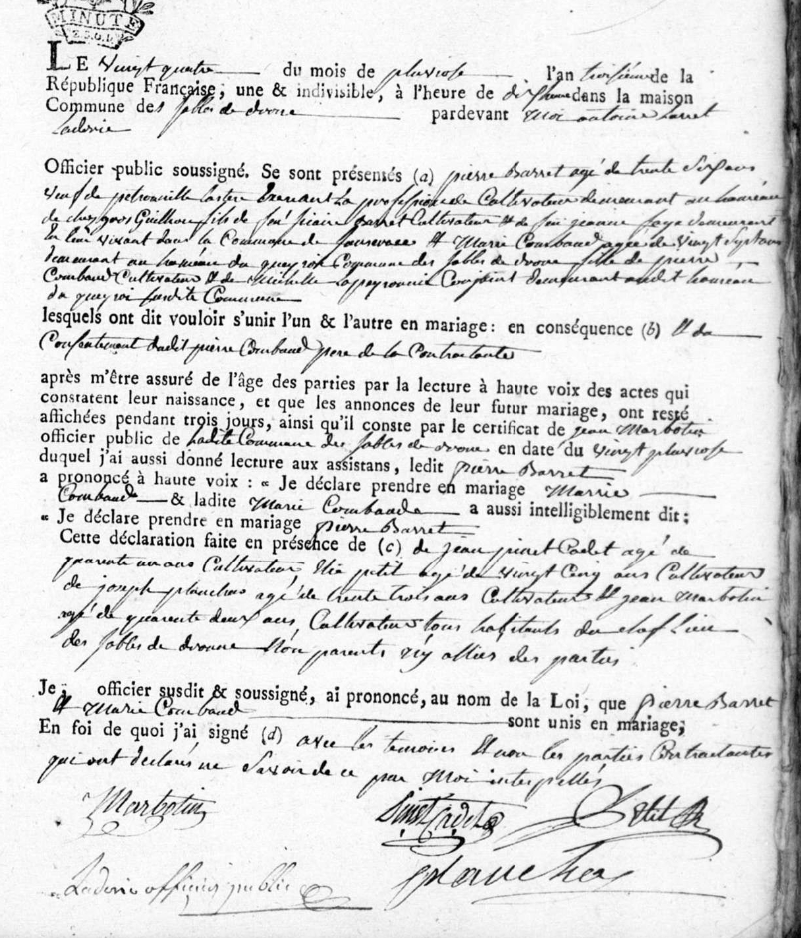 MINUTE
LE vingt quatre du mois de pluviose l'an troisieme de la
République Française, une & indivisible, à l'heure de dans la maison
Commune des sables de drone pardevant Moi antoine
Laderie
Officier public soussigné. Se sont présentés (a) pierre Barret agé de trente six ans
veuf de petronille Exersant La profession de Cultivateur demeurant au hameau
de chez Guilhou fils de feu barret Cultivateur Et de feu jeanne faye demeurant
de leur vivant dans la Commune de Et Marie Combaud agée de vingt sept ans
demeurant au hameau du queyroi Commune des sables de drone fille de pierre
Combaud Cultivateur Et de Michelle Lapeyronnie Conjoint demeurant audit hameau
du queyroi susdite Commune
lesquels ont dit vouloir s'unir l'un & l'autre en mariage : en conséquence (b) Et du
Consentement dudit pierre Combaud pere de la Contractante
après m'être assuré de l'âge des parties par la lecture à haute voix des actes qui
constatent leur naissance, et que les annonces de leur futur mariage, ont resté
affichées pendant trois jours, ainsi qu'il conste par le certificat de jean Marbotin
officier public de Ladite Commune des sables de drone en date du vingt pluviose
duquel j'ai aussi donné lecture aux assistans, ledit pierre Barret
a prononcé à haute voix : « Je déclare prendre en mariage Marrie
Combaude & ladite Marie Combaude a aussi intelligiblement dit :
« Je déclare prendre en mariage pierre Barret
Cette déclaration faite en présence de (c) de jean pinet Cadet agé de
quarente un ans Cultivateur petit agé de vingt Cinq ans Cultivateur
de joseph planchas agé de trente trois ans Cultivateur Et jean Marbotin
agé de quarente deux ans, Cultivateur tous habitants du chef Lieu
des sables de dronne Non parents ny alliés des parties
Je, officier susdit & soussigné, ai prononcé, au nom de la Loi, que pierre Barret
Et Marie Combaud sont unis en mariage ;
En foi de quoi j'ai signé (d) avec les temoins Et non les parties Contractantes
qui ont declarés ne Savoir de ce par Moi interpellés
Marbotin Pinet Cadet Petit
Laderie officier public planchas